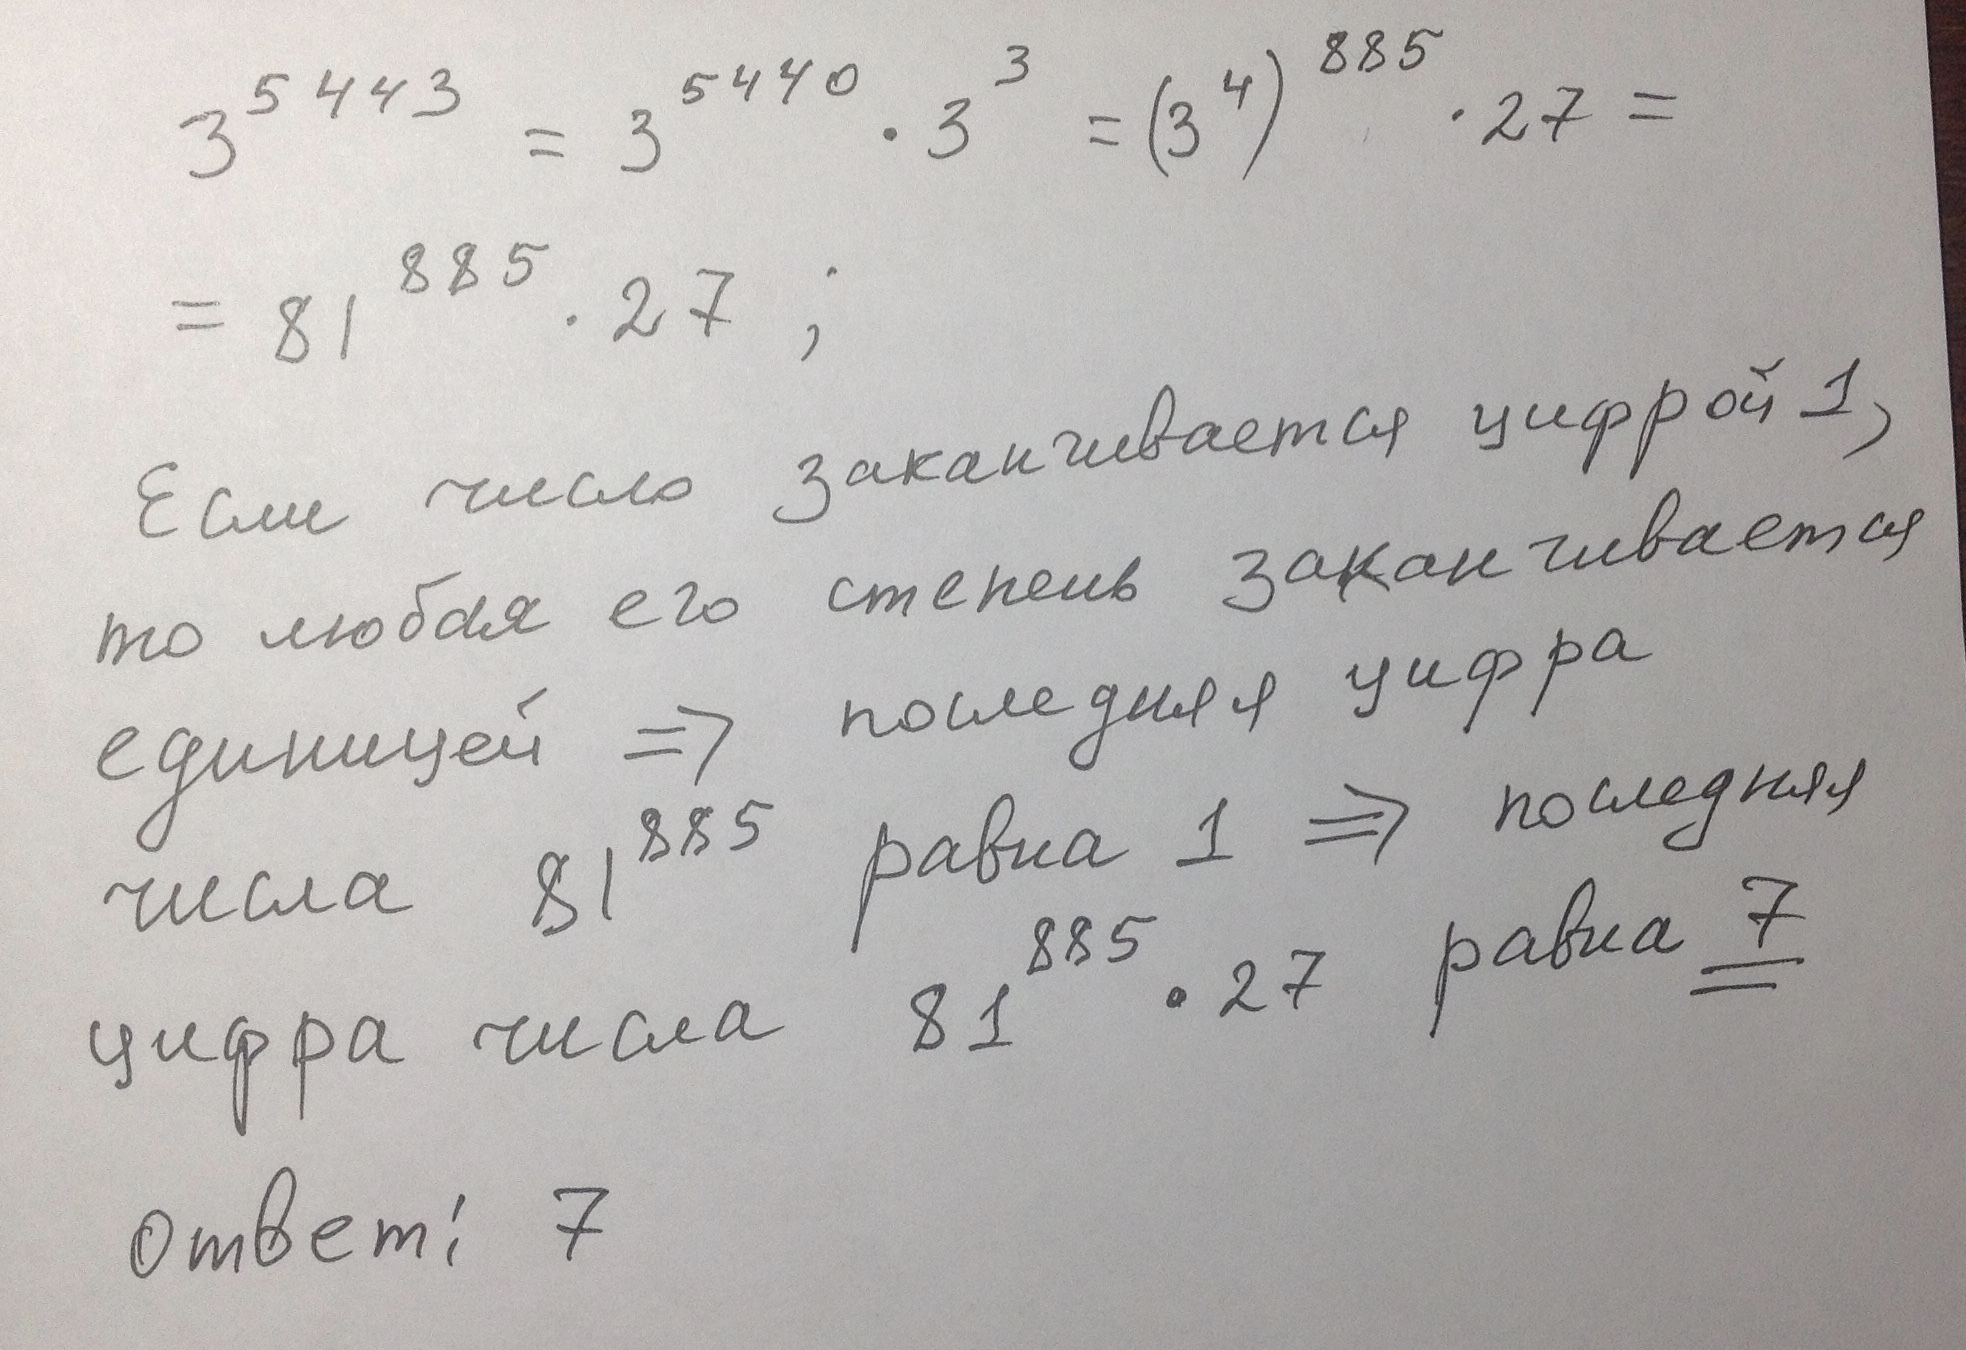 3^5443 = 3^5440 · 3^3 = (3^4)^885 · 27 =
= 81^885 · 27 ;
Если число заканчивается цифрой 1,
то любая его степень заканчивается
единицей => последняя цифра
числа 81^885 равна 1 => последняя
цифра числа 81^885 · 27 равна 7
Ответ: 7